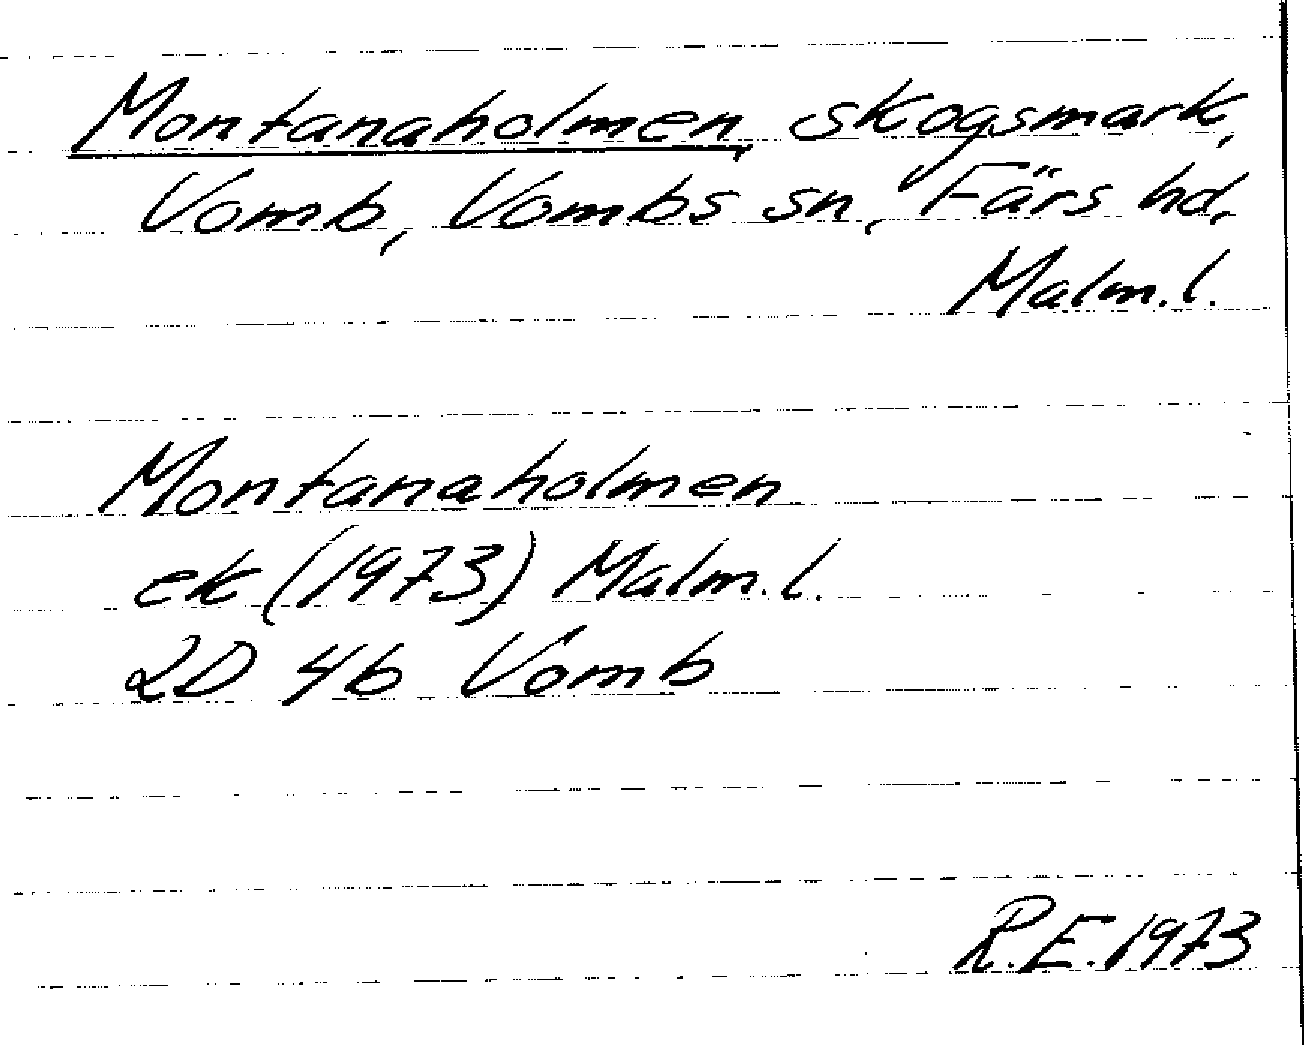 Montanaholmen, skogsmark,
Vomb, Vombs sn, Färs hd,
Malm.l.
Montanaholmen
ek (1973) Malm.l.
2D 4b Vomb
R.E. 1973